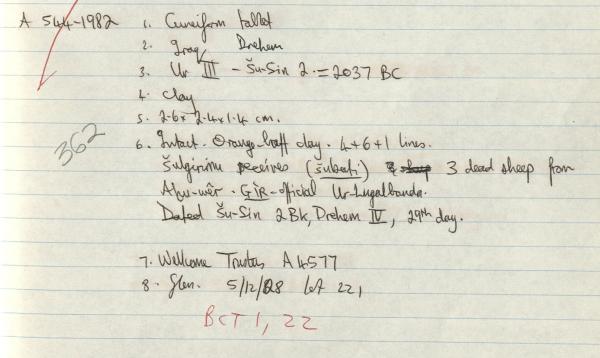 A 544-1982 1. Cuneiform tablet
2. Iraq, Drehem
3. Ur III - Šu-Sin 2 = 2037 BC
4. Clay
5. 2.6 x 2.4 x 1.4 cm.
362
6. Intact. Orange-buff clay. 4+6+1 lines.
Šulgirimu receives (šubati) 3 dead sheep from
Ahu-wêr. GÌR-official Ur-Lugalbanda.
Dated Šu-Sin 2 Bk, Drehem IV, 29th day.
7. Wellcome Trustees A 4577
8. Glen. 5/12/28 Lot 221
BCT 1, 22